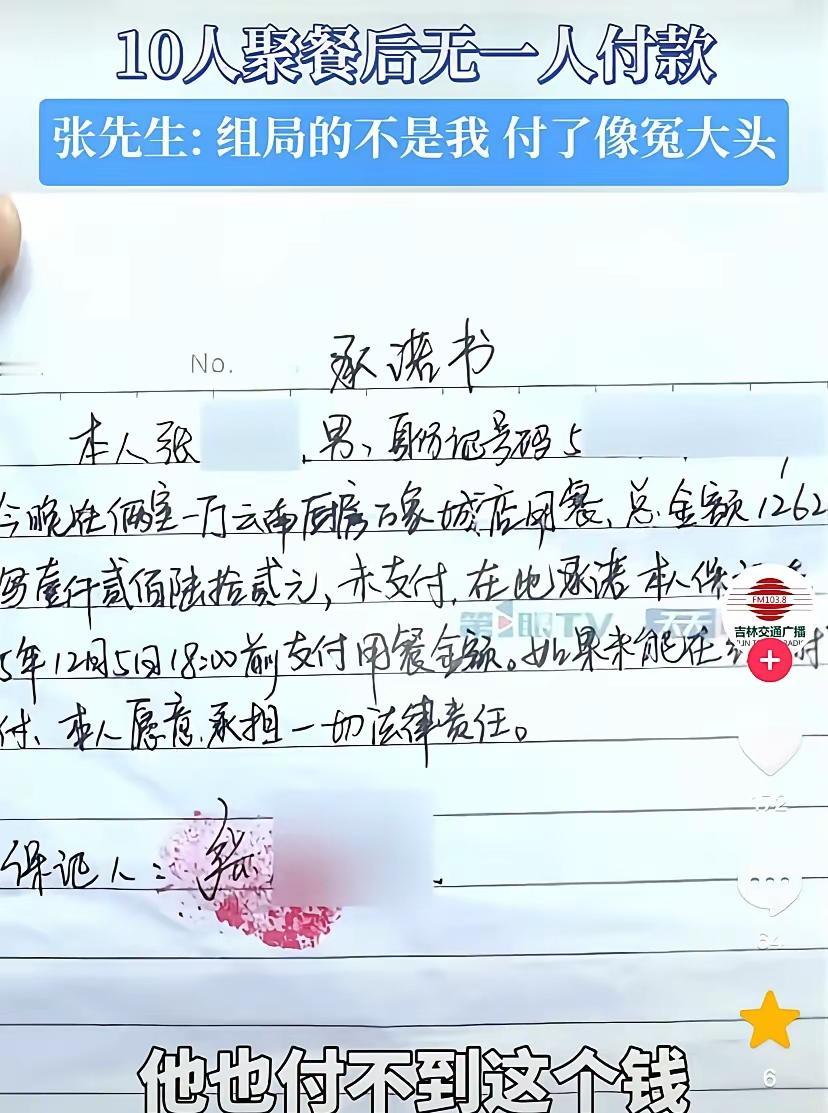 10人聚餐后无一人付款
张先生: 组局的不是我 付了像冤大头
No.
承诺书
本人张 男、身份证号码5
今晚在俩室一厅云南厨房万象城店用餐、总金额1262
写壹仟贰佰陆拾贰元，未支付，在此承诺本人保
第1眼TV 天天
FM103.8
吉林交通广播
5年12月5日18:00前支付用餐金额。如果未能在
付、本人愿意承担一切法律责任。
172
保证人：张
64
6
他也付不到这个钱